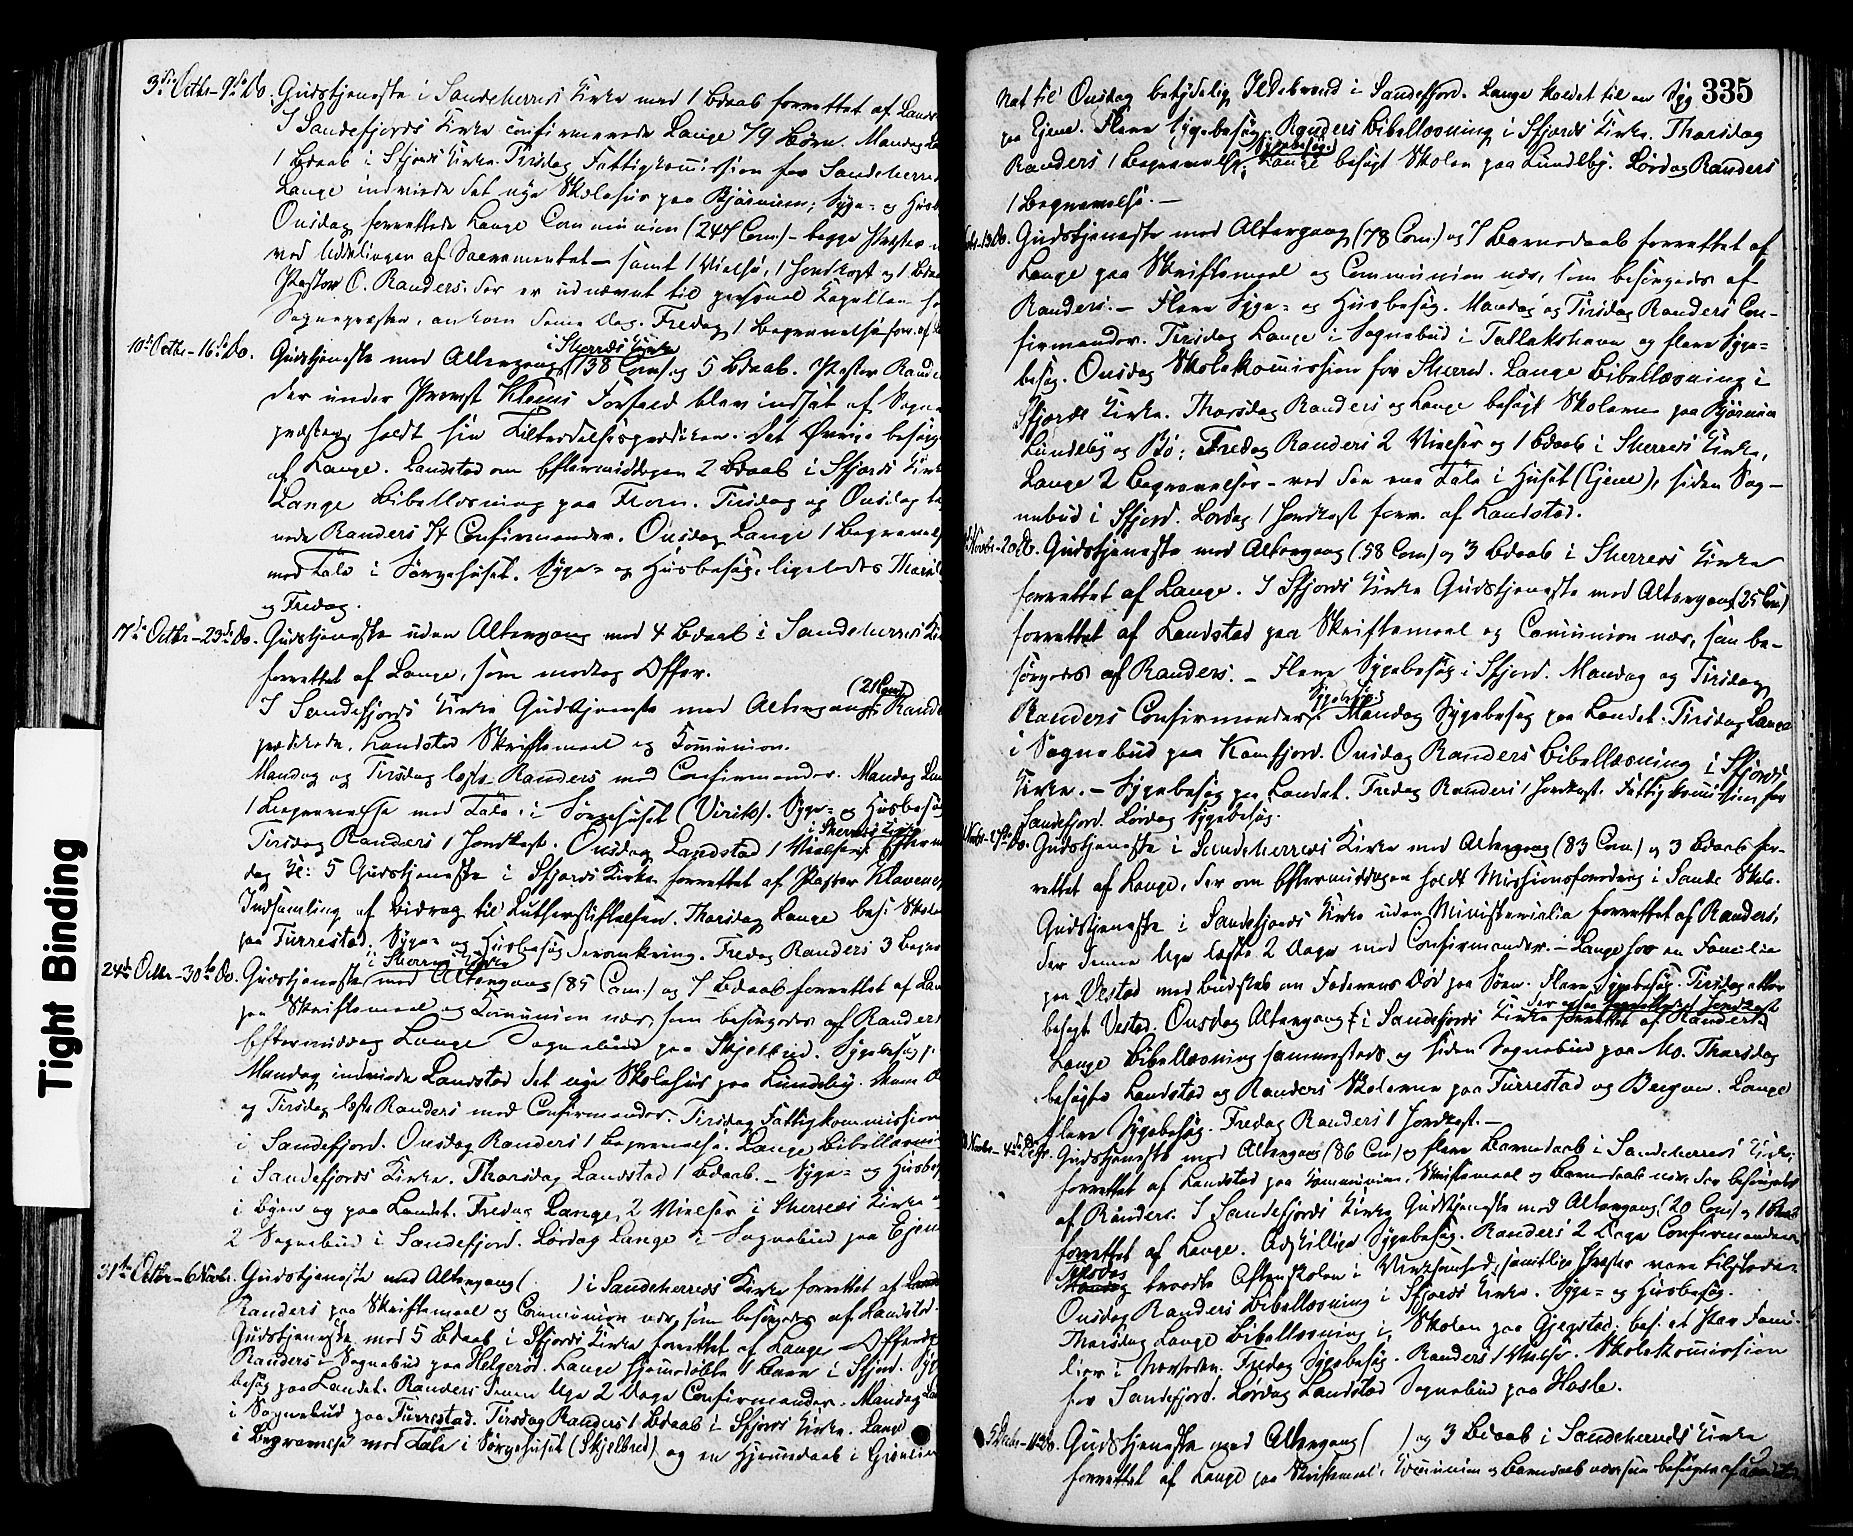 3die Octbr – 9de Do. Gudstjeneste i Sandeherreds Kirke med 1 bdaab forrettet af
I Sandefjords Kirke confirmerede Lange 79 Børn. Mandag
1 bdaab i Sfjords Kirke. Tirsdag Fattigkommission for
Lange indviede det nye Skolehus paa Bjørnum; Syge- og
Onsdag forrettede Lange Communion (247 Com.) – begge Præster
ved Uddelingen af Sacramentet – samt 1 Vielse, 1 Jordkast og 1
Pastor O. Randers, der er udnævnt til personel Kapellan
Sognepræsten, ankom denne Dag. Fredag 1 Begravelse forr. af
10de Octbr – 16de Do. Gudstjeneste med Altergang i Sherreds Kirke (138 Com.) og 5 bdaab. Pastor
der under Provst Klouns Forfald blev indsat af
præsten, holdt sin Tiltrædelsesprædiken. Det Øvrige
af Lange. Landstad om Eftermiddagen 2 bdaab i Sfjords
Lange Bibellæsning paa Fram. Tirsdag og Onsdag
Randers Confirmander. Onsdag Lange 1
med Tale i Sørgehuset. Syge- og Husbesøg, ligeledes
og Fredag.
17de Octbr – 23de Do. Gudstjeneste uden Altergang med 4 bdaab i Sandeherreds
forrettet af Lange, som modtog Offer.
I Sandefjords Kirke Gudstjeneste med Altergang (21 Com.)
prædikede, Landstad Skriftemaal og Kommunion.
Mandag og Tirsdag læste Randers med Confirmander. Mandag
1 Begravelse med Tale i Sørgehuset (Virik). Syge- og
Tirsdag Randers 1 Jordkast. Onsdag Landstad 1 Vielse i Sherreds Kirke.
dag Kl: 5 Gudstjeneste i Sfjords Kirke forrettet af Pastor
Indsamling af Bidrag til Lutherstiftelsen. Thorsdag Lange bes.
paa Furrestad. Syge- og Husbesøg deromkring. Fredag Randers 3
24de Octbr – 30te Do. Gudstjeneste i Sherreds Kirke med Altergang (85 Com.) og 7 bdaab forrettet af
paa Skriftemaal og Communion nær, som besørgedes af
Eftermiddag Lange Sognebud paa Skjelbred. Sygebesøg
Mandag indviede Landstad det nye Skolehus paa Lundeby.
og Tirsdag læste Randers med Confirmander. Tirsdag Fattigkommission
i Sandefjord. Onsdag Randers 1 Begravelse. Lange
i Sandefjords Kirke. Thorsdag Landstad 1 bdaab. – Syge- og
i Byen og paa Landet. Fredag Lange 2 Vielser i Sherreds Kirke
2 Sognebud i Sandefjord. Lørdag Lange i Sognebud paa
31te Octbr – 6 Novbr. Gudstjeneste med Altergang ( ) i Sandeherreds Kirke forrettet af
Randers paa Skriftemaal og Communion nær, som besørgedes af Landstad.
Gudstjeneste med 5 bdaab i Sfjords Kirke forrettet af Lange.
Randers i Sognebud paa Helgerød. Lange hjemmedøbte 1 Barn i Sfjord.
besøg paa Landet. Randers denne Uge 2 Dage Confirmander. Mandag
i Sognebud paa Furrestad. Tirsdag Randers 1 bdaab i Sfjords Kirke. Lange
1 Begravelse med Tale i Sørgehuset (Skjelbred) og en Hjemmedaab i
335
Nat til Onsdag betydelig Ildebrand i Sandefjord. Lange kaldet til en Syg
paa Gjene. Flere Sygebesøg. Randers Bibellæsning i Sfjords Kirke. Thorsdag
Randers 1 Begravelse, Sygebesøg Lange besøgt Skolen paa Lundeby. Lørdag Randers
1 Begravelse. –
13 Do. Gudstjeneste med Altergang (78 Com.) og 7 Barnedaab forrettet af
Lange paa Skriftemaal og Communion nær, som besørgedes af
Randers. – Flere Syge- og Husbesøg. Mandag og Tirsdag Randers Con-
firmander. Tirsdag Lange i Sognebud i Tallakshavn og flere Syge-
besøg. Onsdag Skolekommission for Sherred. Lange Bibellæsning i
Sfjords Kirke. Thorsdag Randers og Lange besøgt Skolerne paa Bjørnum
Lundeby og Bø. Fredag Randers 2 Vielser og 1 bdaab i Sherreds Kirke,
Lange 2 Begravelser – ved den ene Tale i Huset (Gjene), siden Sog-
nebud i Sfjord. Lørdag 1 Jordkast forr. af Landstad.
Novbr – 20 Do. Gudstjeneste med Altergang (58 Com) og 3 bdaab i Sherreds Kirke
forrettet af Lange. I Sfjords Kirke Gudstjeneste med Altergang (25 Com)
forrettet af Landstad paa Skriftemaal og Communion nær, som be-
sørgedes af Randers. – Flere Sygebesøg i Sfjord. Mandag og Tirsdag
Randers Confirmander. Sygebesøg. Mandag Sygebesøg paa Landet. Tirsdag Lange
i Sognebud paa Kamfjord. Onsdag Randers Bibellæsning i Sfjords
Kirke. – Sygebesøg paa Landet. Fredag Randers 1 Jordkast. Fattigkommission for
Sandefjord. Lørdag Sygebesøg.
Novbr – 27 Do. Gudstjeneste i Sandeherreds Kirke med Altergang (83 Com.) og 3 bdaab for-
rettet af Lange, der om Eftermiddagen holdt Missionsforedrag i Sande Skole.
Gudstjeneste i Sandefjords Kirke uden Ministerialia forrettet af Randers,
der denne Uge læste 2 Dage med Confirmander. – Lange hos en Familie
paa Vestad med Budskab om Faderens Død paa Søen. Flere Sygebesøg. Tirsdag atter
besøgt Vestad. Onsdag Altergang i Sandefjords Kirke forrettet af Randers, der ogsaa forrettede et Jordkast
Lange Bibellæsning sammesteds og siden Sognebud paa Mo. Thorsdag
besøgte Landstad og Randers Skolerne paa Furrestad og Bergan. Lange
flere Sygebesøg. Fredag Randers 1 Jordkast. –
Novbr – 4de Decbr. Gudstjeneste med Altergang (86 Com) og flere Barnedaab i Sandeherreds Kirke,
forrettet af Landstad paa Kommunion, Skriftemaal og Barnedaab nær, der besørgedes
af Randers. I Sandefjords Kirke Gudstjeneste med Altergang (20 Com) og 1
forrettet af Lange. Adskillige Sygebesøg. Randers 2 Dage Confirmander.
Tirsdag traadte Aftenskolen i Virksomhed, samtlige Præster vare tilstede.
Onsdag Randers Bibellæsning i Sfjords Kirke. Syge- og Husbesøg.
Thorsdag Lange Bibellæsning i Skolen paa Gjegstad, bes. et Par Fami-
lier i Nærheden. Fredag Sygebesøg. Randers 1 Vielse. Skolekommission
for Sandefjord. Lørdag Landstad Sognebud paa Hasle.
5 Decbr – 11 Do. Gudstjeneste med Altergang ( ) og 3 bdaab i Sandeherreds Kirke
forrettet af Lange paa Skriftemaal, Communion og Barnedaab nær, som besørgedes af
Tight Binding